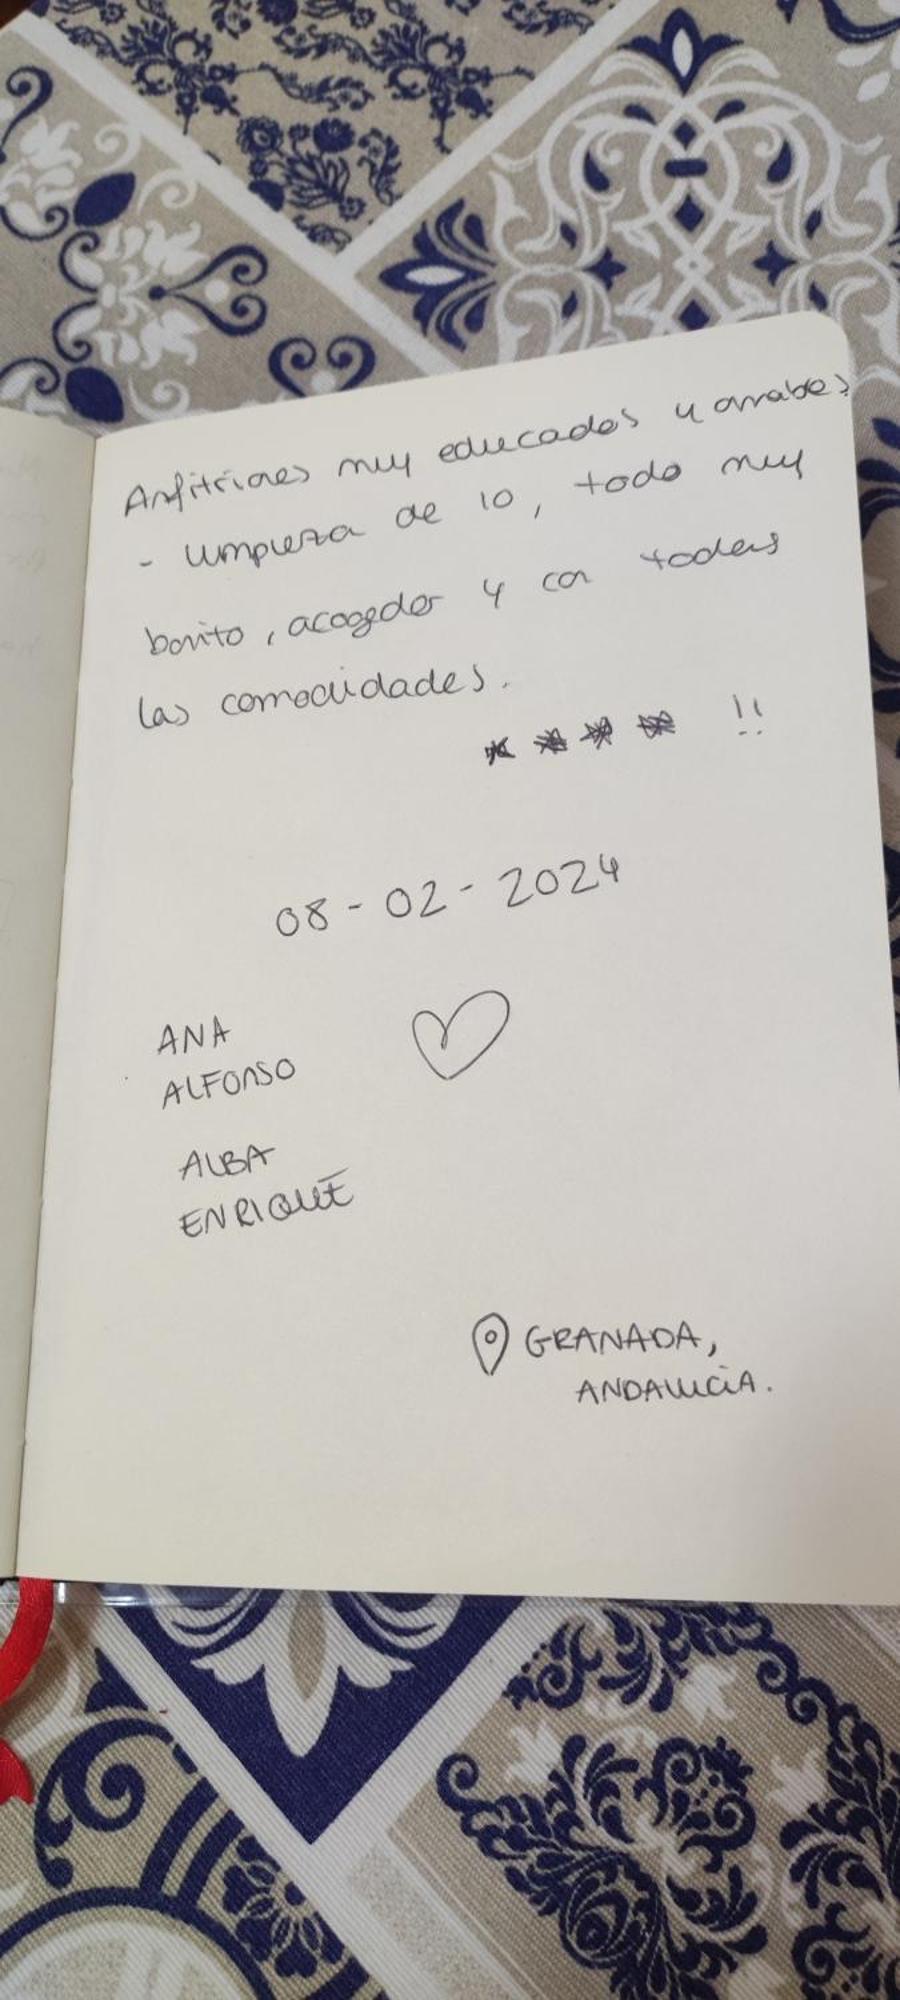 Anfitriones muy educados y amables
- limpieza de 10, todo muy
bonito, acogedor y con todas
las comodidades.
★ ★ ★ ★ !!
08-02-2024
ANA
ALFONSO
ALBA
ENRIQUE
GRANADA,
ANDALUCIA.